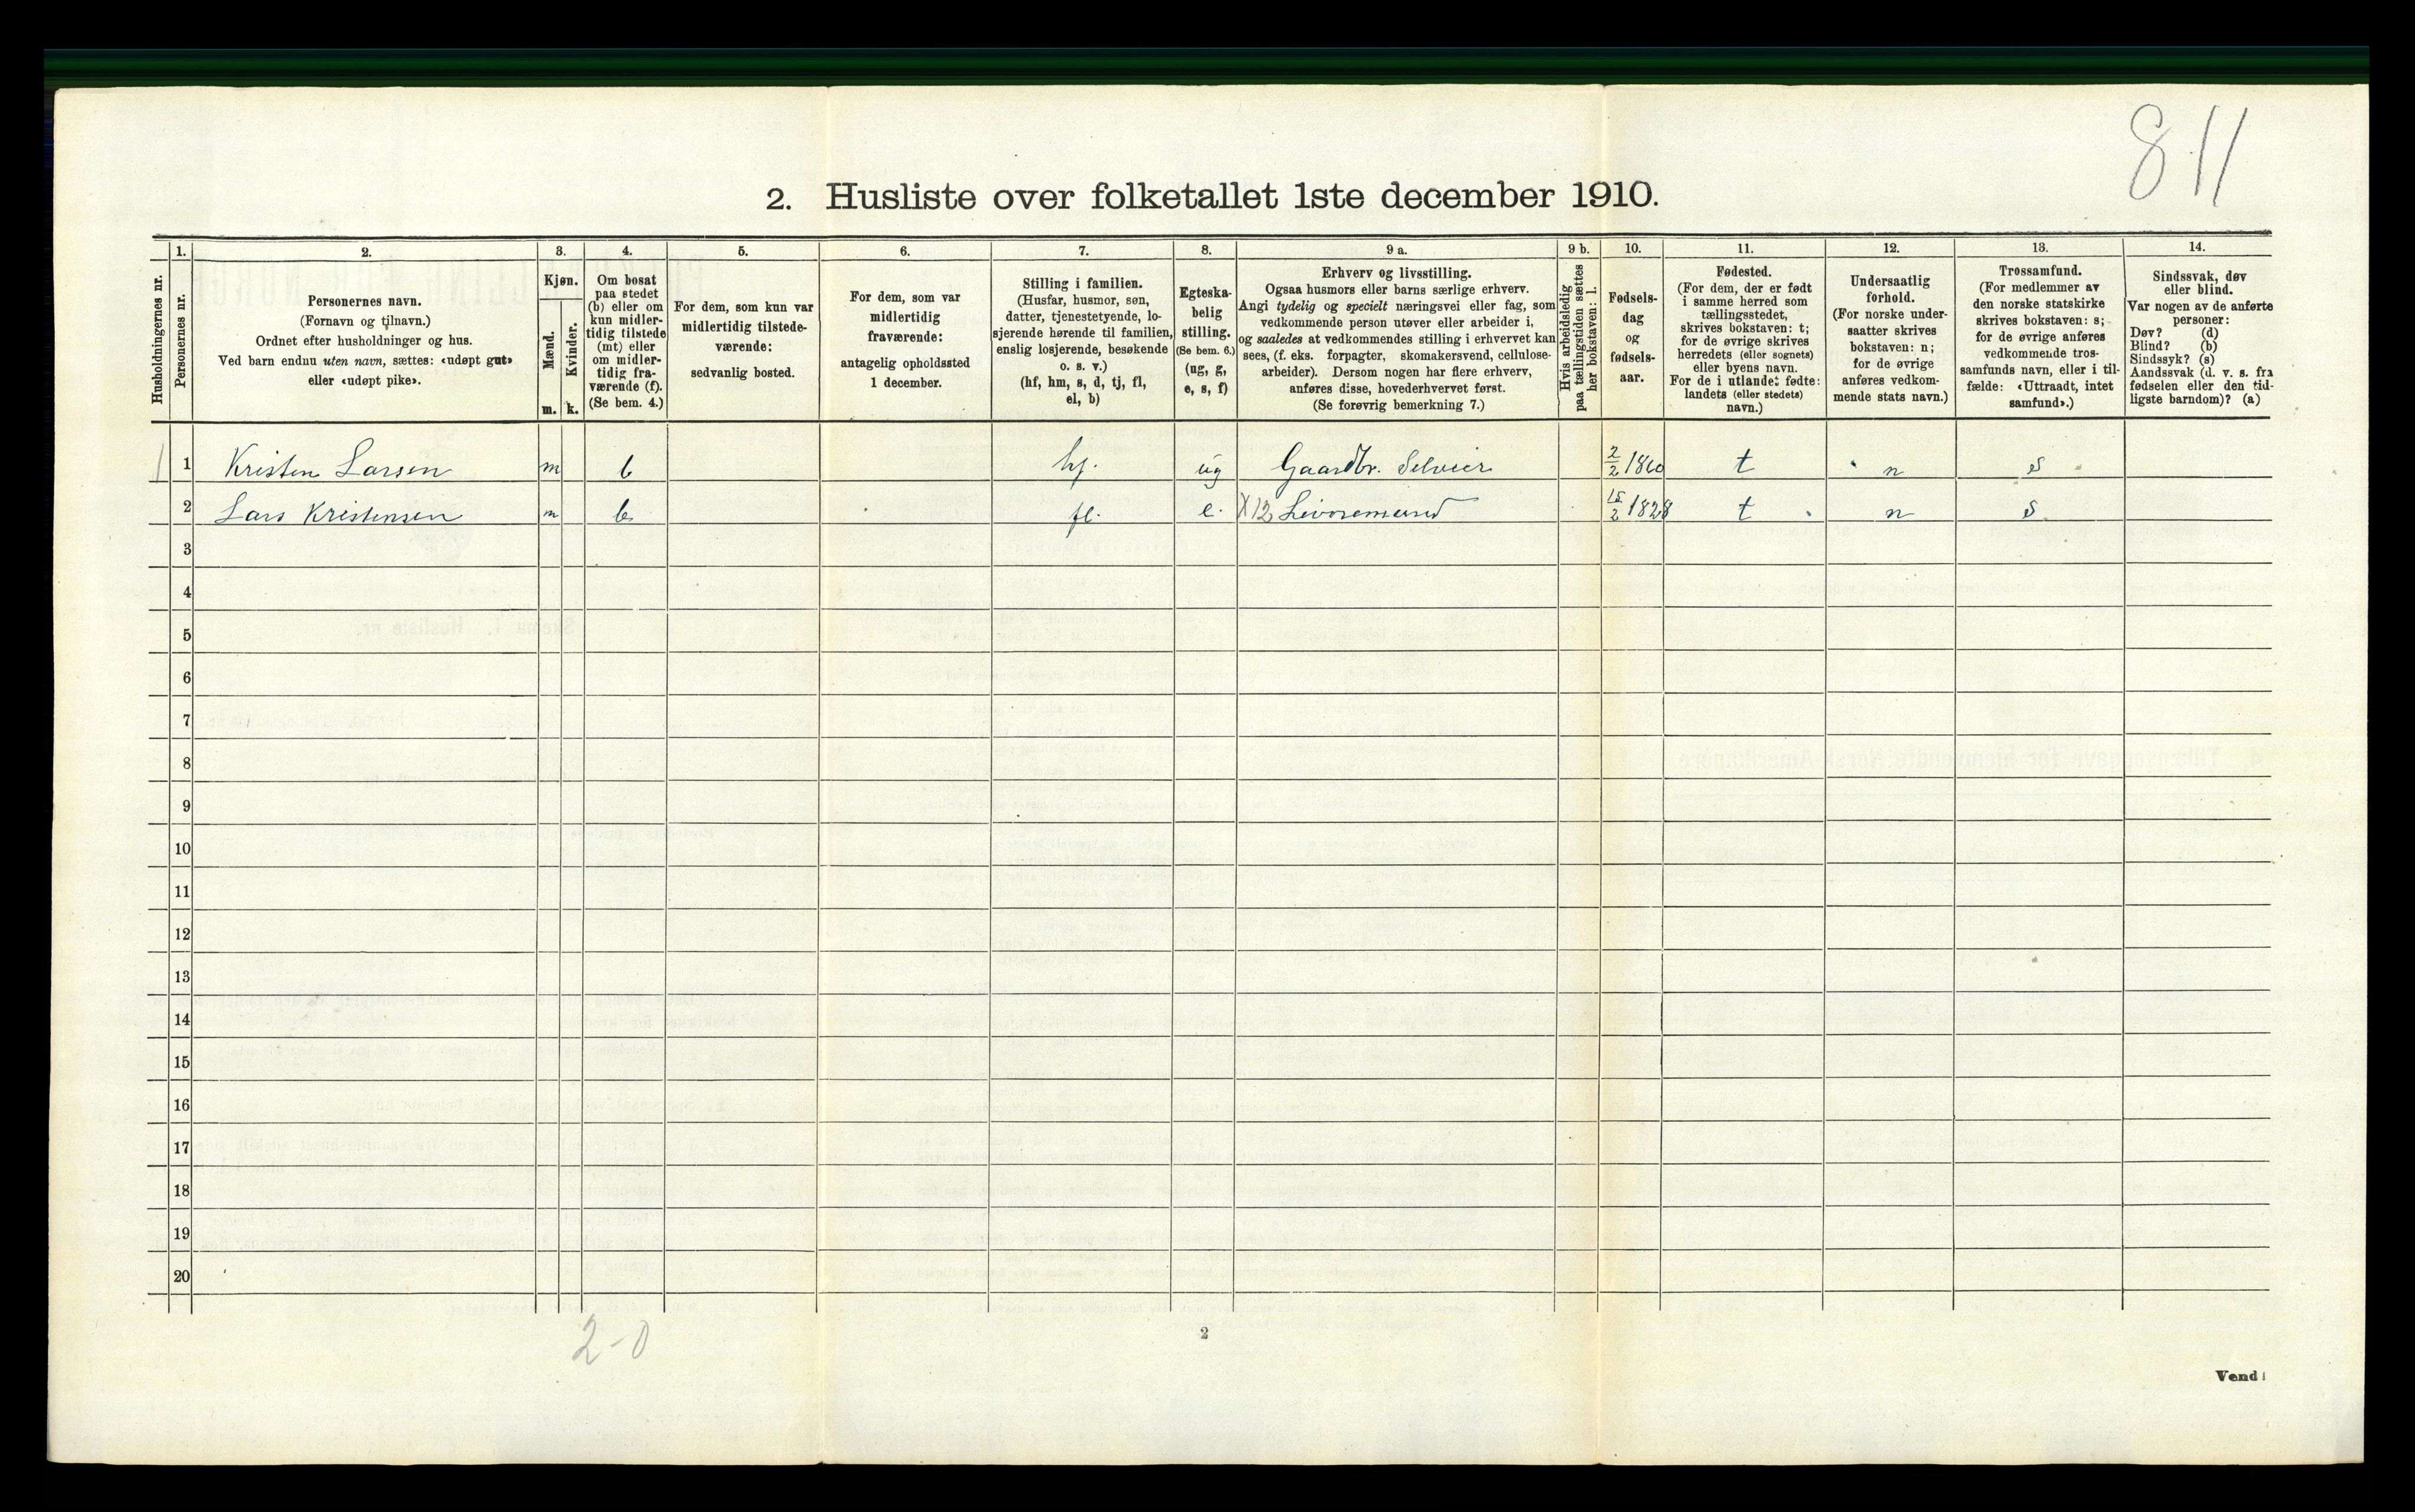 811
2. Husliste over folketallet 1ste december 1910.
Husholdningernes nr.
1.
Personernes nr.
2.
Personernes navn.
(Fornavn og tilnavn.)
Ordnet efter husholdninger og hus.
Ved barn endnu uten navn, sættes: «udøpt gut»
eller «udøpt pike».
3.
Kjøn.
Mænd.
Kvinder.
m. k.
4.
Om bosat
paa stedet
(b) eller om
kun midler-
tidig tilstede
(mt) eller
om midler-
tidig fra-
værende (f).
(Se bem. 4.)
5.
For dem, som kun var
midlertidig tilstede-
værende:
sedvanlig bosted.
6.
For dem, som var
midlertidig
fraværende:
antagelig opholdssted
1 december.
7.
Stilling i familien.
(Husfar, husmor, søn,
datter, tjenestetyende, lo-
sjerende hørende til familien,
enslig losjerende, besøkende
o. s. v.)
(hf, hm, s, d, tj, fl,
el, b)
8.
Egteska-
belig
stilling.
(Se bem. 6.)
(ug, g,
e, s, f)
9 a.
Erhverv og livsstilling.
Ogsaa husmors eller barns særlige erhverv.
Angi tydelig og specielt næringsvei eller fag, som
vedkommende person utøver eller arbeider i,
og saaledes at vedkommendes stilling i erhvervet kan
sees, (f. eks. forpagter, skomakersvend, cellulose-
arbeider). Dersom nogen har flere erhverv,
anføres disse, hovederhvervet først.
(Se forøvrig bemerkning 7.)
9 b.
Hvis arbeidsledig
paa tællingstiden sættes
her bokstaven: l.
10.
Fødsels-
dag
og
fødsels-
aar.
11.
Fødested.
(For dem, der er født
i samme herred som
tællingsstedet,
skrives bokstaven: t;
for de øvrige skrives
herredets (eller sognets)
eller byens navn.
For de i utlandet fødte:
landets (eller stedets)
navn.)
12.
Undersaatlig
forhold.
(For norske under-
saatter skrives
bokstaven: n;
for de øvrige
anføres vedkom-
mende stats navn.)
13.
Trossamfund.
(For medlemmer av
den norske statskirke
skrives bokstaven: s;
for de øvrige anføres
vedkommende tros-
samfunds navn, eller i til-
fælde: «Uttraadt, intet
samfund».)
14.
Sindssvak, døv
eller blind.
Var nogen av de anførte
personer:
Døv? (d)
Blind? (b)
Sindssyk? (s)
Aandssvak (d. v. s. fra
fødselen eller den tid-
ligste barndom)? (a)
1 1 Kristen Larsen m b hf. ug Gaardbr. Selveier 2/2 1860 t n s
2 Lars Kristensen m b fl. e. X12 15/2 1828 t n s
3
4
5
6
7
8
9
10
11
12
13
14
15
16
17
18
19
20
2-0
2
Vend